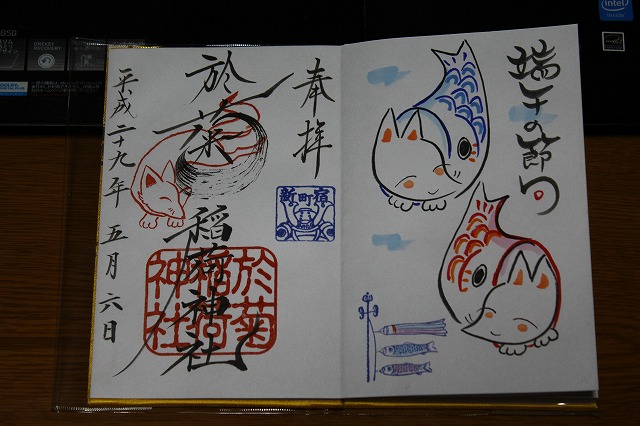 端午の節句
奉拝
新町宿
於菊
稲荷神社
於菊
稲荷
神社
平成二十九年 五月六日
intel
ONEKEY
RECOVERY